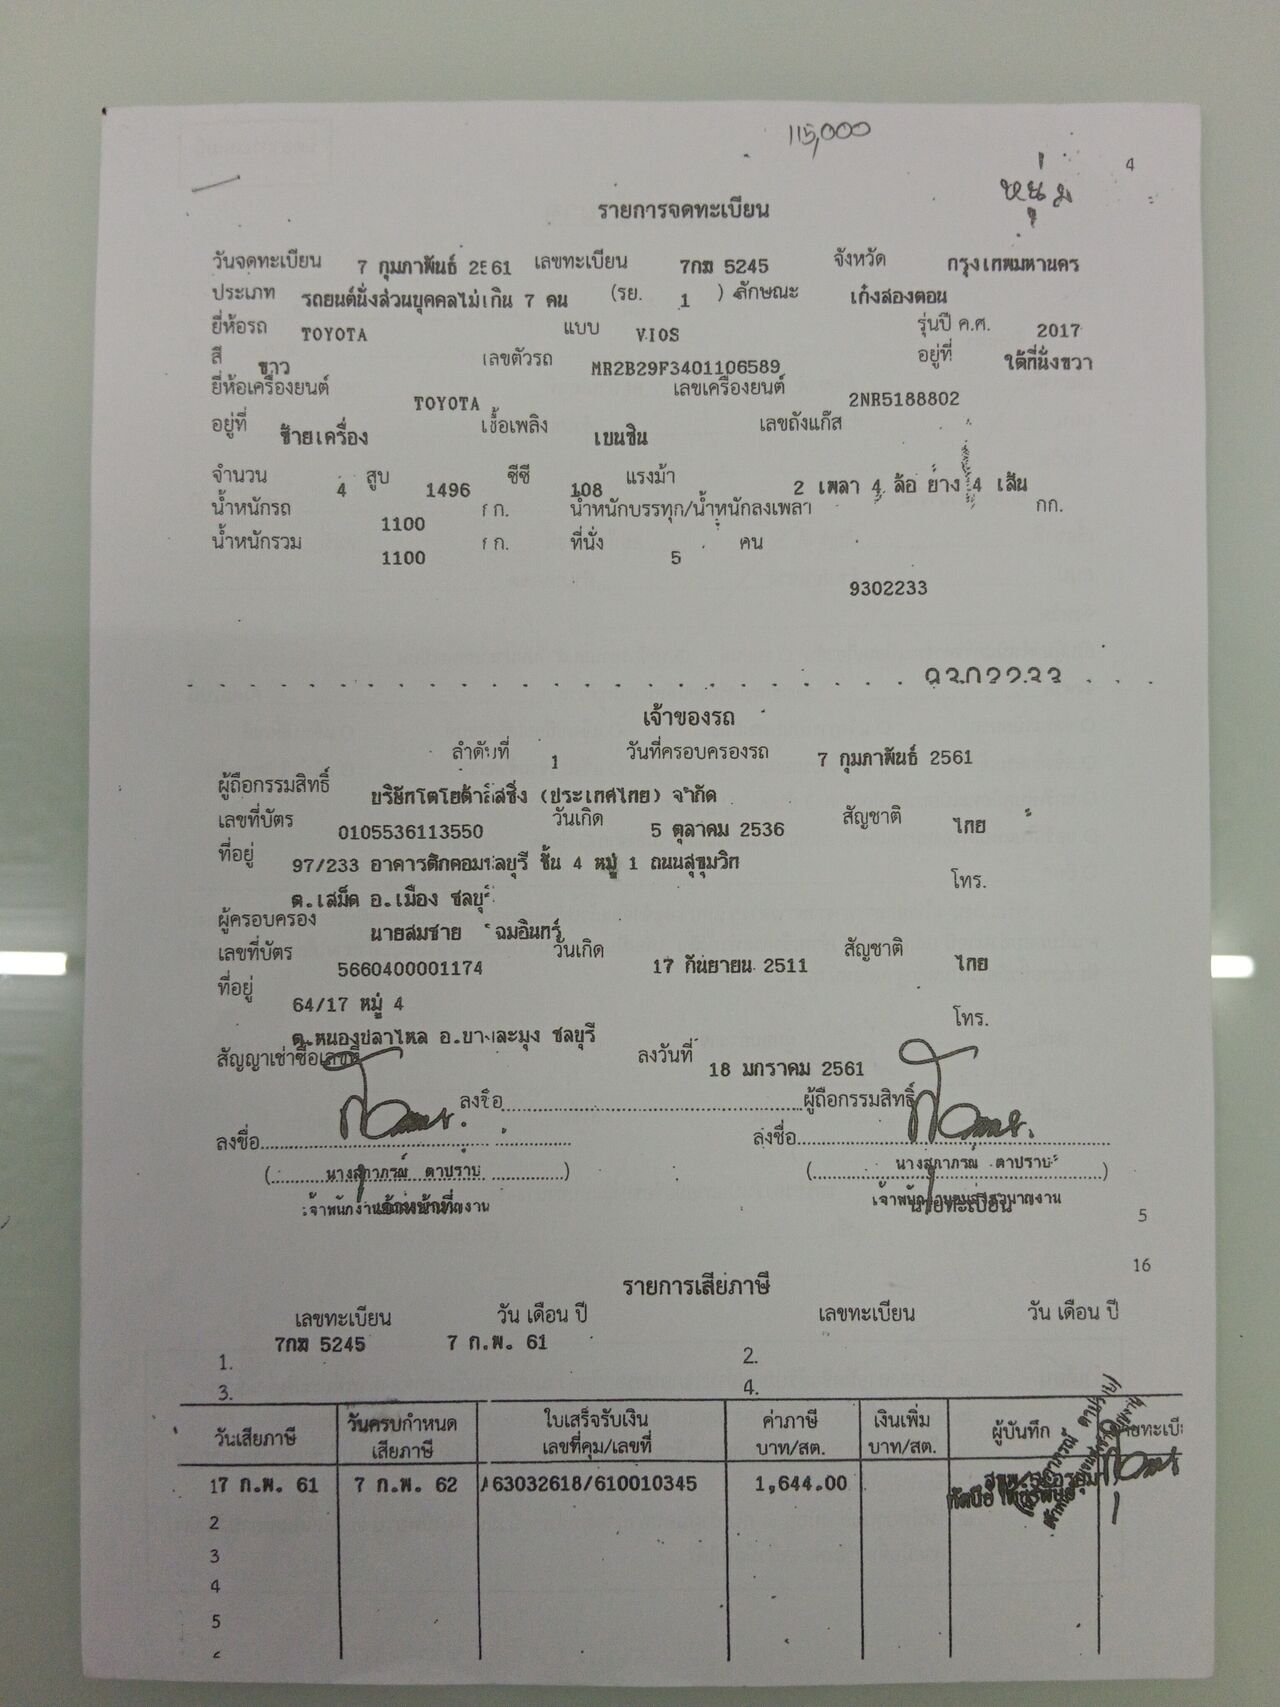 115,000
4
หนุ่ม
รายการจดทะเบียน
วันจดทะเบียน 7 กุมภาพันธ์ 2561 เลขทะเบียน 7กฆ 5245 จังหวัด กรุงเทพมหานคร
ประเภท รถยนต์นั่งส่วนบุคคลไม่เกิน 7 คน (รย. 1 ) ลักษณะ เก๋งสองตอน
ยี่ห้อรถ TOYOTA แบบ VIOS รุ่นปี ค.ศ. 2017
สี ขาว เลขตัวรถ MR2B29F3401106589 อยู่ที่ ใต้ที่นั่งขวา
ยี่ห้อเครื่องยนต์ TOYOTA เลขเครื่องยนต์ 2NR5188802
อยู่ที่ ซ้ายเครื่อง เชื้อเพลิง เบนซิน เลขถังแก๊ส
จำนวน 4 สูบ 1496 ซีซี 108 แรงม้า 2 เพลา 4 ล้อ ยาง 4 เส้น
น้ำหนักรถ 1100 กก. น้ำหนักบรรทุก/น้ำหนักลงเพลา กก.
น้ำหนักรวม 1100 กก. ที่นั่ง 5 คน
9302233
9302233
เจ้าของรถ
ลำดับที่ 1 วันที่ครอบครองรถ 7 กุมภาพันธ์ 2561
ผู้ถือกรรมสิทธิ์ บริษัทโตโยต้าลีสซิ่ง (ประเทศไทย) จำกัด
เลขที่บัตร 0105536113550 วันเกิด 5 ตุลาคม 2536 สัญชาติ ไทย
ที่อยู่ 97/233 อาคารตึกคอมชลบุรี ชั้น 4 หมู่ 1 ถนนสุขุมวิท
ต.เสม็ด อ.เมือง ชลบุรี โทร.
ผู้ครอบครอง นายสมชาย โฉมอินทร์
เลขที่บัตร 5660400001174 วันเกิด 17 กันยายน 2511 สัญชาติ ไทย
ที่อยู่ 64/17 หมู่ 4
ต.หนองปลาไหล อ.บางละมุง ชลบุรี โทร.
สัญญาเช่าซื้อเลขที่ ลงวันที่ 18 มกราคม 2561
ลงชื่อ ผู้ถือกรรมสิทธิ์
ลงชื่อ ลงชื่อ
(นางสุภาภรณ์ ตาปราบ) (นางสุภาภรณ์ ตาปราบ)
เจ้าหน้าที่ นายทะเบียน
5
16
รายการเสียภาษี
เลขทะเบียน วัน เดือน ปี เลขทะเบียน วัน เดือน ปี
1. 7กฆ 5245 7 ก.พ. 61 2.
3. 4.
วันเสียภาษี วันครบกำหนดเสียภาษี ใบเสร็จรับเงิน เลขที่คุม/เลขที่ ค่าภาษี บาท/สต. เงินเพิ่ม บาท/สต. ผู้บันทึก
1 7 ก.พ. 61 7 ก.พ. 62 63032618/610010345 1,644.00
2
3
4
5